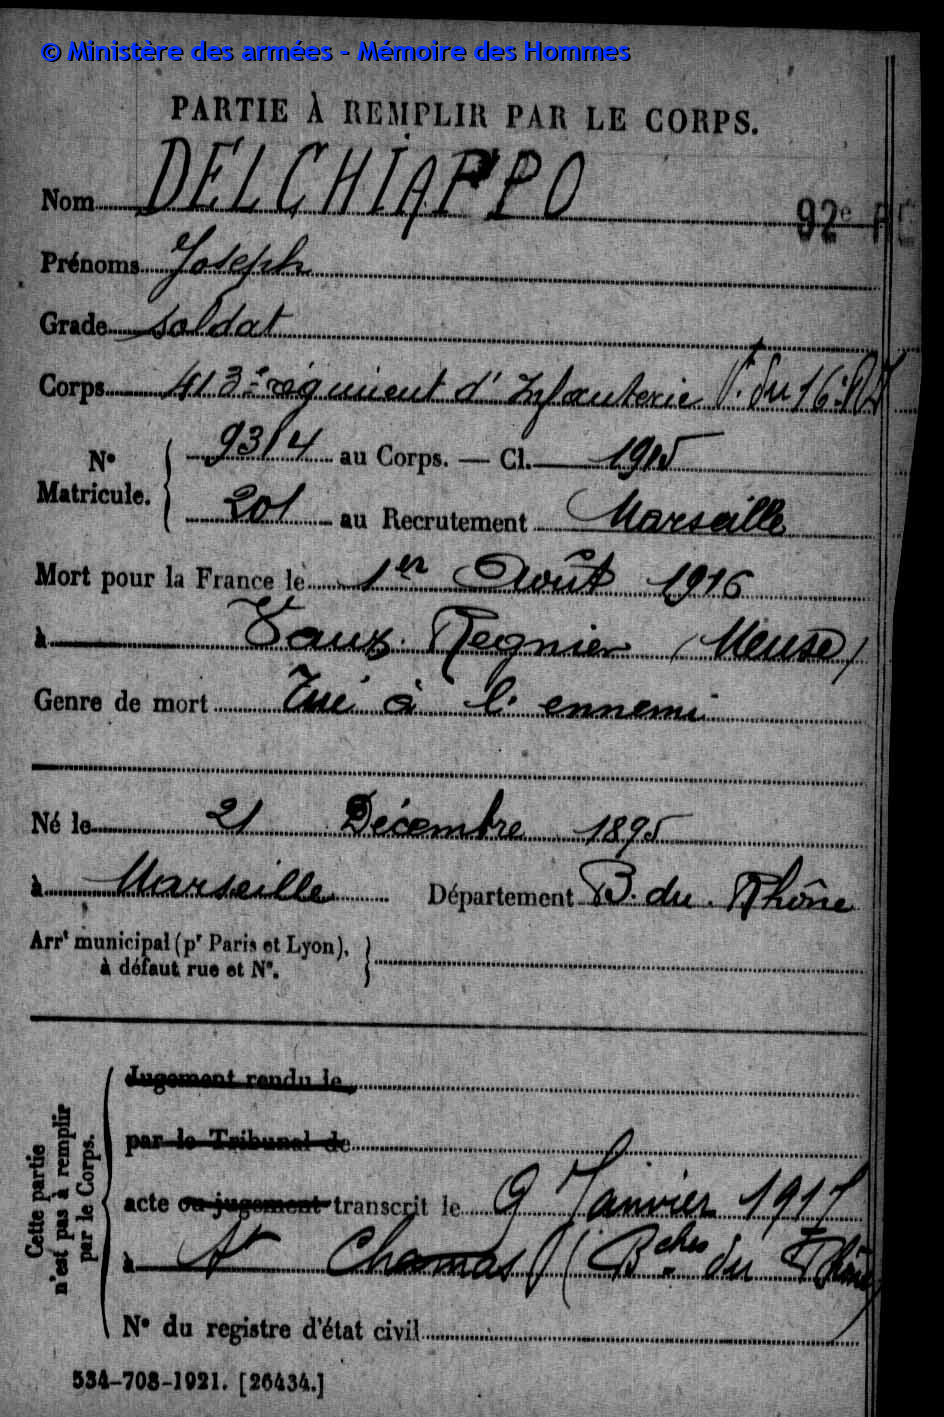 © Ministère des armées - Mémoire des Hommes
PARTIE À REMPLIR PAR LE CORPS.
Nom DELCHIAPPO
92e
Prénoms Joseph
Grade soldat
Corps 413e régiment d'Infanterie V. du 16e
N° Matricule. 9314 au Corps. — Cl. 1915
201 au Recrutement Marseille
Mort pour la France le 1er Août 1916
à Vaux-Regnier (Meuse)
Genre de mort Tué à l'ennemi
Né le 21 Décembre 1895
à Marseille Département B. du Rhône
Arrt municipal (pr Paris et Lyon),
à défaut rue et N°.
Cette partie
n'est pas à remplir
par le Corps.
Jugement rendu le
par le Tribunal de
acte ou jugement transcrit le 9 Janvier 1917
à St Chamas (Bches du Rhône)
N° du registre d'état civil
534-708-1921. [26434.]